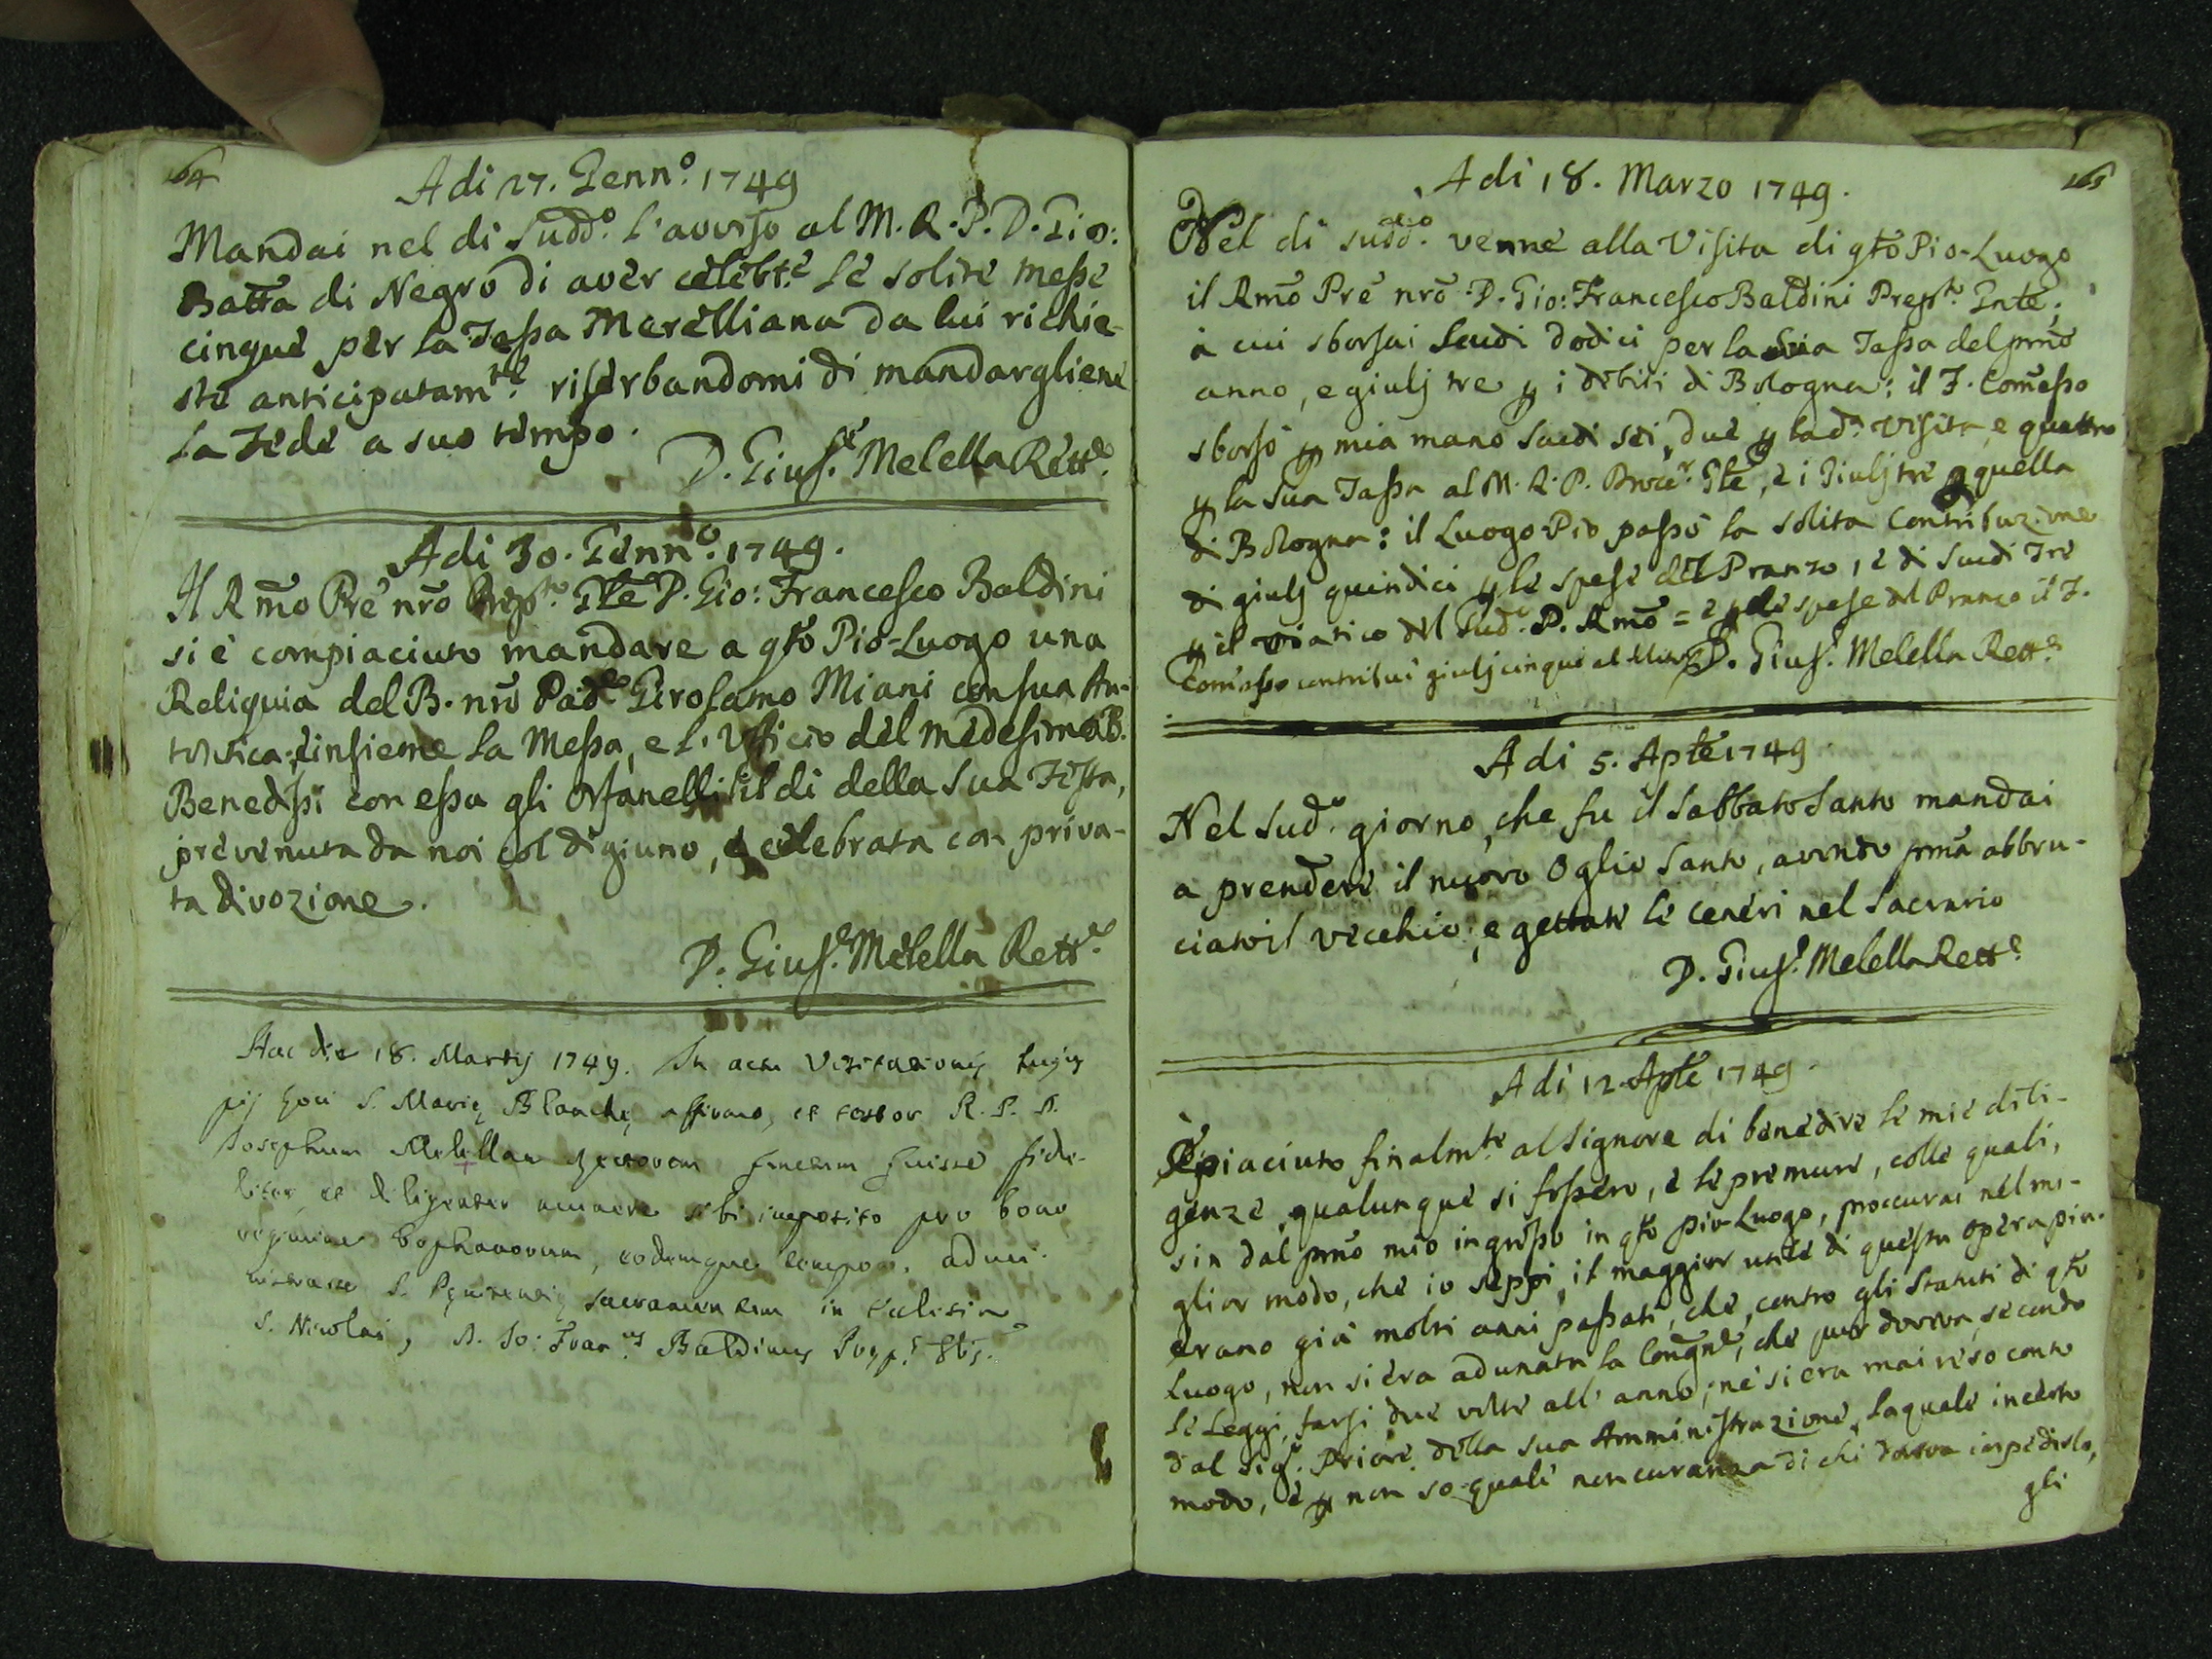 164
Adi 27. Genn.º 1749
Mandai nel di Sudd.º l'avviso al M. R. P. D. Gio:
Batta di Negro di aver celebt.e le solite messe
cinque per la Tassa Merelliana da lui richie-
ste anticipatam.te riserbandomi di mandargliene
la Fede a suo tempo.
D. Gius.e Melella Rett.e
Adi 30. Genn.º 1749.
Il Rmo Pre nro Prep.to Gle D. Gio: Francesco Baldini
si è compiaciuto mandare a qto Pio-Luogo una
Reliquia del B. nro Pad.e Girolamo Miani con sua Au-
tentica; e insieme la Messa, e l'Uficio del medesimo B.
Benedissi con essa gli Orfanelli il di della Sua Festa,
prevenuta da noi col digiuno, e celebrata con priva-
ta divozione.
D. Gius.e Melella Rett.e
Hac die 18. Martij 1749. In actu Visitationis hujus
pij Loci S. Marie Blanche, affirmo, et testor R. P. D.
Josephum Melellam Rectorem functum fuisse fide-
liter, et diligenter munere sibi imposito pro bono
regimine Orphanorum, eodemque tempore admi-
nistrasse S. Penitentie Sacramentum in Eclesia
S. Nicolai, D. Jo: Fran.us Baldinus Prep.s Glis.
165
Adi 18. Marzo 1749.
Nel di sudd.º venne alla Visita di qto Pio-Luogo
il Rmo Pre nro D. Gio: Francesco Baldini Prep.to Gnle;
a cui sborsai Scudi dodici per la Sua Tassa del pmo
anno, e giulj tre p i debiti di Bologna: il F. Comesso
sborsò p mia mano Scudi sei, due p la d.a visita e quattro
p la sua Tassa al M. R. P. Procc.r Gle, e i Giulj tre p quella
di Bologna: il Luogo Pio passò la solita Contribuzione
di giulj quindici p le spese del Pranzo, e di Scudi Tre
p il viatico del Sud.o P. Rmo = e p le spese del Pranzo il F.
Comesso contribuì giulj cinque D. Gius.e Melella Rett.e
Adi 5. Aple 1749.
Nel Sud.o giorno, che fu il Sabbato Santo mandai
a prendere il nuovo Oglio Santo, avendo pma abbru-
ciato il vecchio, e gettate le ceneri nel Sacrario
D. Gius.e Melella Rett.e
Adi 12 Aple 1749.
È piaciuto finalm.te al Signore di benedire le mie dili-
genze, qualunque si fossero, e le premure, colle quali,
sin dal pmo mio ingresso in qto pio-Luogo, proccurai nel mi-
glior modo, che io seppi, il maggior utile di questa opera pia.
erano già molti anni passati, che, contro gli Statuti di qto
Luogo, non si era adunata la Congne, che pur doveva, secondo
le Leggi, farsi due volte all'anno; nè si era mai reso conto
dal Sig.e Priore della sua Amministrazione, laquale incerto
modo, e p non so quale noncuranza di chi doveva impedirlo,
gli